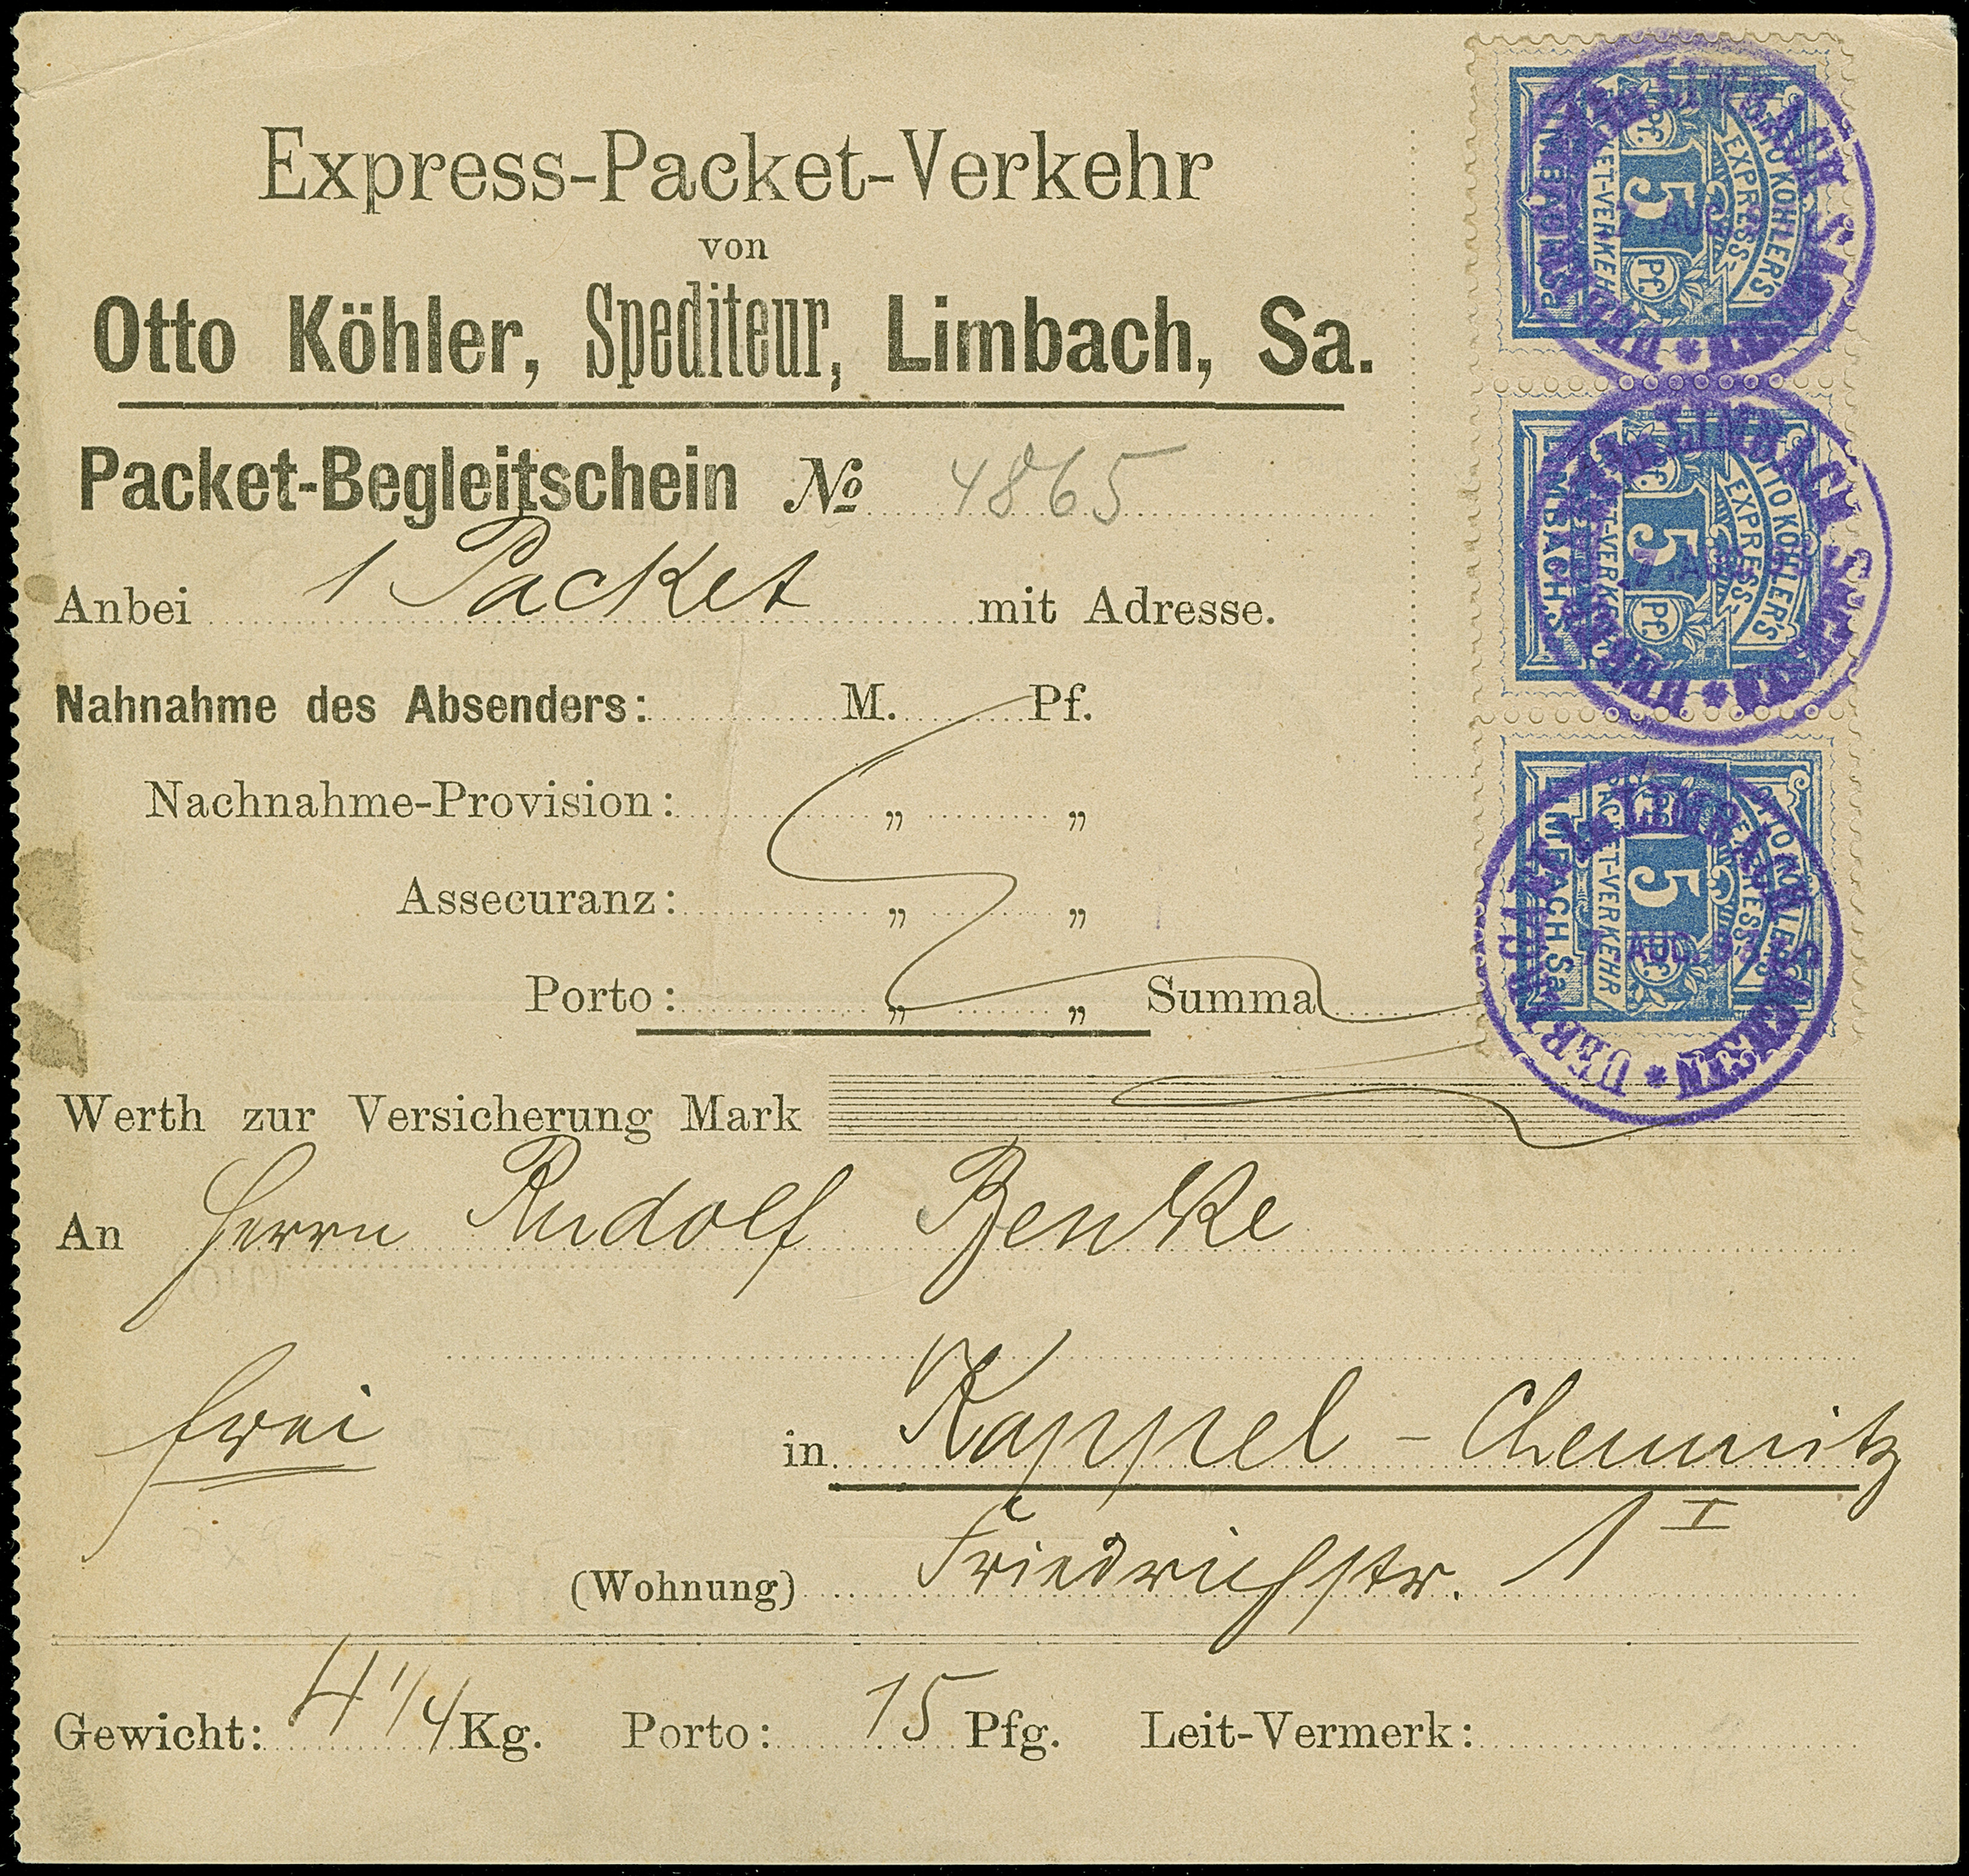 Express-Packet-Verkehr
von
Otto Köhler, Spediteur, Limbach, Sa.
Packet-Begleitschein No 4865
Anbei 1 Packet mit Adresse.
Nahnahme des Absenders: M. Pf.
Nachnahme-Provision: „ „
Assecuranz: „ „
Porto: „ „ Summa
Werth zur Versicherung Mark
An Herrn Rudolf Benke
frei in Kappel - Chemnitz
(Wohnung) Friedrichstr. 1 I
Gewicht: 4 1/4 Kg. Porto: 15 Pfg. Leit-Vermerk:
OTTO KÖHLER'S
EXPRESS-
PACKET-VERKEHR
LIMBACH Sa.
5
Pf. Pf.
LIMBACH SACHSEN
OTTO KÖHLER'S
EXPRESS-
5
Pf. Pf.
LIMBACH SACHSEN
AUG
5
PACKET-VERKEHR
LIMBACH Sa.
LIMBACH SACHSEN
AUG